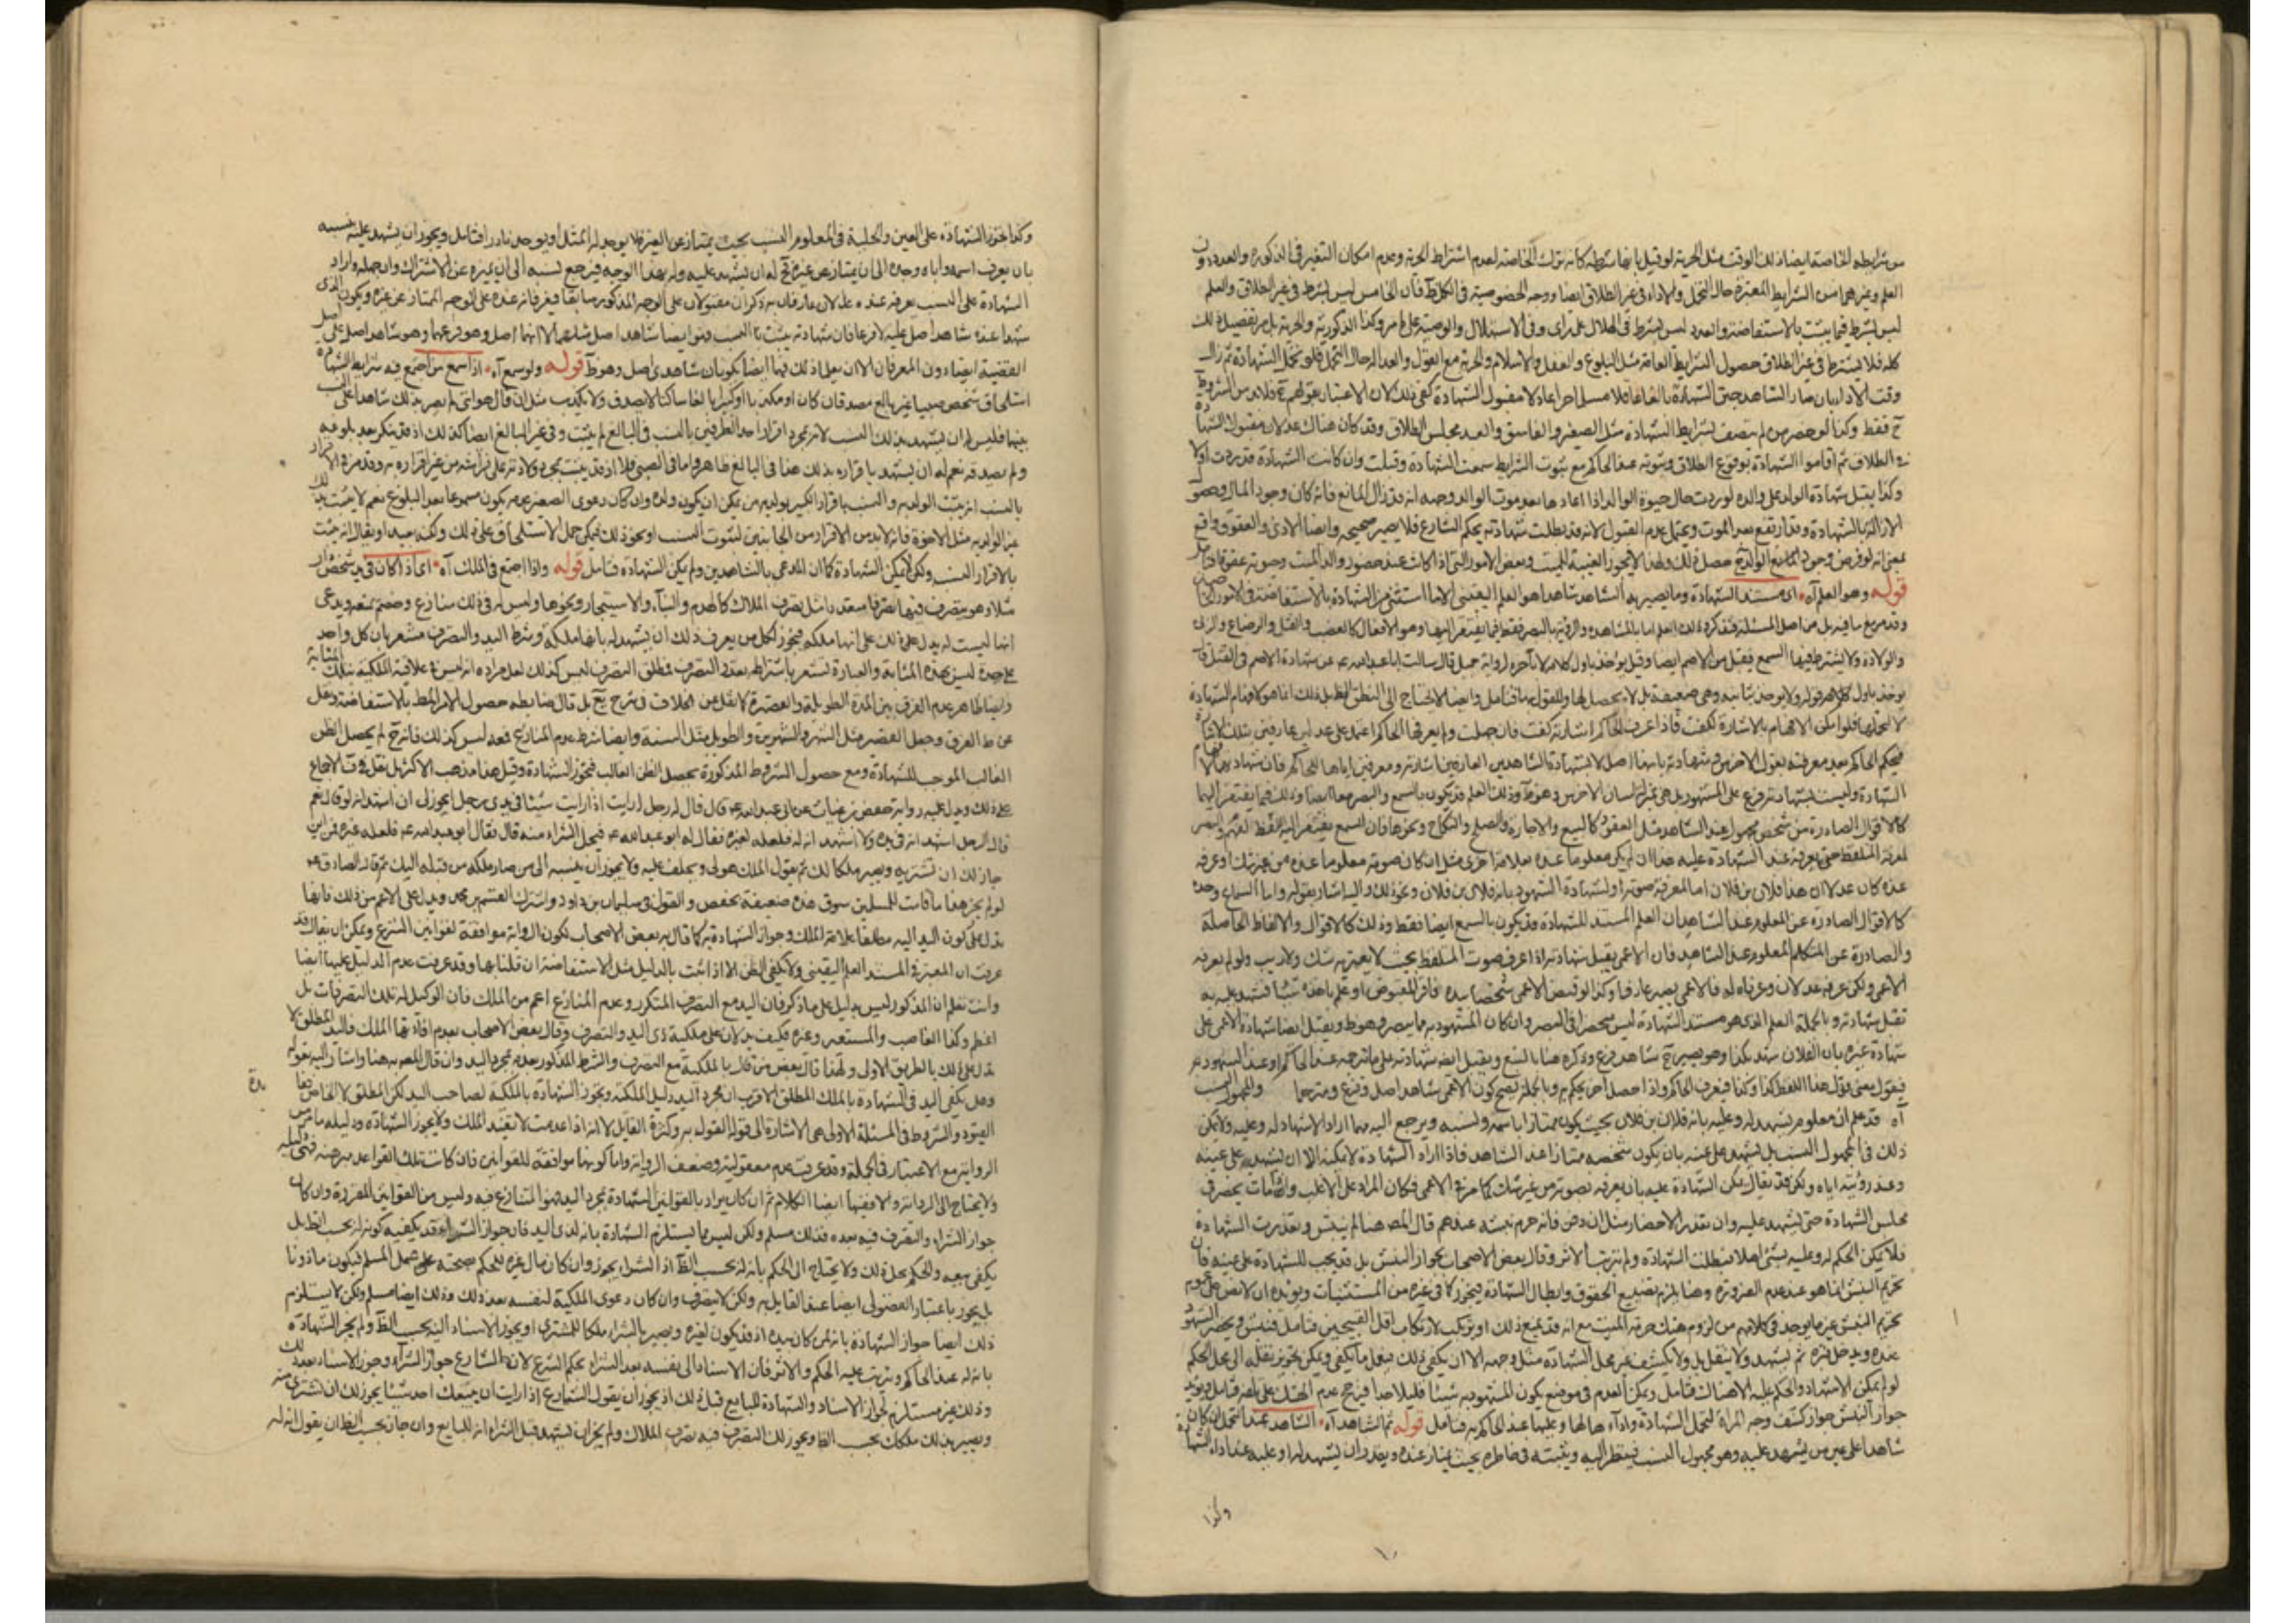 من شرايطه الخاصة ايضا ذلك الوقت مثل الحرية لو قيل بانها شرطه كانه ترك الخاصة لعدم اشتراط الحرية وعدم امكان التغير في الذكورة والعدد وان
العلم وغيرهما من الشرايط المعتبرة حال التحمل والاداء في غير الطلاق ايضا ووجه الخصوصية في الكل ظ فان الخامس ليس بشرط في غير الطلاق والعلم
ليس بشرط فيما يثبت بالاستفاضة والعدد ليس بشرط في الهلال على راى وفى الاستهلال والوصية على ما مر وكذا الذكورية والحرية بل مر تفصيل ذلك
كله فلا يشترط في غير الطلاق حصول الشرايط العامة مثل البلوغ والعقل والاسلام والحرية مع القول والعدالة حال التحمل فلو تحمل الشهادة ثم زال
وقت الاداء بان صار الشاهد حين الشهادة بالغا عاقلا مسلما حرا عادلا مقبول الشهادة كفى ذلك لان الاعتبار بقولهم ح فلابد من الشروط
ح فقط وكذا لو حضر من لم يتصف بشرايط الشهادة مثل الصغير والفاسق والعبد مجلس الطلاق وقد كان هناك عدلان مقبولا الشهادة
في الطلاق ثم اقاموا الشهادة بوقوع الطلاق وثبوته عند الحاكم مع ثبوت الشرايط سمعت الشهادة وقبلت وان كانت الشهادة قد ردت اولا
وكذا يقبل شهادة الولد على والده لو ردت حال حيوة الوالد اذا اعادها بعد موت الوالد ووجهه انه قد زال المانع فانه كان وجود المال وهو
بالشهادة وقد ارتفع بعد الموت ويحتمل عدم القبول لانه قد بطلت شهادته بحكم الشارع فلا يصير صحيحه وايضا الاذى والعقوق واقع
بمعنى انه لو فرض وجود المانع الولد ح حصل ذلك ولهذا لا يجوز الغيبة للميت وبعض الامور التي اذا كانت عند حضور والد الميت وحيوته عقوقا
قوله وهو العلم آه اى مستند الشهادة وما يصير به الشاهد شاهدا هو العلم اليقينى الا ما استثنى من الشهادة بالاستفاضة في الامور الخاصة
وقد مر مع ما فيه بل من اصل المسئلة فتذكر وذلك العلم اما بالمشاهدة والرؤية بالبصر فقط فيما يفتقر اليها وهو الافعال كالغصب والقتل والرضاع والزنا
والولادة ولا يشترط فيها السمع فيقبل من الاصم ايضا وقيل يؤخذ باول كلامه لا بآخره لرواية جميل قال سالت ابا عبد الله ع عن شهادة الاصم في القتل قال
يؤخذ باول قوله ولا يؤخذ بثانيه وهى ضعيفة بل لا يحصل لها وللقول بها فتامل وايضا لا يحتاج الى النطق
لا لتحملها فلو امكن الافهام بالاشارة لكفت فاذا عرف الحاكم اشارته كفت فان جهلت ولم يعرفها الحاكم اعتمد على عدلين عارفين بتلك الاشارة
فيحكم الحاكم بعد معرفته بقول الاخرس وشهادته بانها اصل لا بشهادة الشاهدين العارفين اشارته ومعرفين اياها للحاكم فان شهادتهما
الشهادة وليست بشهادته فرع على المشهود بل هى بمنزلة لسان الاخرس وهو ظ وذلك العلم قد يكون بالسمع والبصر معا ايضا وذلك فيما يفتقر اليهما
كالاقوال الصادرة من شخص مجهول عند الشاهد مثل العقود كالبيع والاجارة والصلح والنكاح ونحوها فان السمع يفتقر اليه لفهم والبصر
لمعرفة المتلفظ حتى يعرفه عند الشهادة عليه هذا ان لم يكن معلوما عنده بعلامة اخرى مثل ان كان صوته معلوما عنده من غير شك او عرفه
عنده كان عدلان ان هذا فلان بن فلان اما لمعرفة صوته او لشهادة الشهود بانه فلان بن فلان ونحو ذلك واليه اشار بقوله واما السماع وحده
كالاقوال الصادرة عن المعلوم عند الشاهد ان العلم المستند للشهادة قد يكون بالسمع ايضا فقط وذلك كالاقوال والالفاظ الحاصلة
والصادرة عن المتكلم المعلوم عند الشاهد فان الاعمى يقبل شهادته اذا عرف صوت المتلفظ بحيث لا يعتريه شك ولا ريب ولو لم يعرفه
الاعمى ولكن عرفه عدلان وعرفاه له فالاعمى يصير عارفا وكذا لو قبض الاعمى شخصا بيده فاقر المقبوض او علم باخذه شيئا فشهد عليه به
تقبل شهادته وبالجملة العلم الذى هو مستند الشهادة ليس منحصرا في البصر وان كان المشهود به مما يبصر وهو ظ ويقبل ايضا شهادة الاعمى على
شهادة غيره بان الفلان شهد بكذا وهو يصير ح شاهد فرع وذكره هنا بالتبع ويقبل ايضا شهادته على ما ترجمه عند الحاكم او عند الشهود
فيقول يعنى بقول هذا اللفظ كذا وكذا فيعرف الحاكم واذا حصل اخر يحكم به وبالجملة يصح كون الاعمى شاهد اصل وفرع ومترجما والمجهول النسب
آه قد علم ان معلوم يشهد له وعليه بانه فلان بن فلان بحيث يكون ممتازا باسمه ونسبه ويرجع اليه مهما اراد الاشهاد له وعليه ولا يمكن
ذلك في مجهول النسب بل يشهد على عينه بان يكون شخصه ممتازا عند الشاهد فاذا اراد الشهادة لا يمكنه الا ان يشهد على عينه
وعند رؤيته اياه ولكن قد يقال يمكن الشهادة عليه بان يعرفه بصوته من غير شك كما مر في الاعمى فكان المراد على الاغلب وان مات يحضر في
مجلس الشهادة حتى يشهد عليه وان تعذر الاحضار مثل ان دفن فانه حرم نبشه عندهم قال المص هنا لم ينبش وتعذرت الشهادة
فلا يمكن الحكم له وعليه بشئ اصلا فبطلت الشهادة ولم يترتب الاثر وقال بعض الاصحاب بجواز النبش بل قد يجب للشهادة على عينه فان
تحريم النبش انما هو عند عدم الضرورة وهنا يلزم تضييع الحقوق وابطال الشهادة فيجوز كما في غيره من المستثنيات ويؤيده ان لا نص على عموم
تحريم النبش غير ما يوجد في كلامهم من لزوم هتك حرمة الميت مع انه قد يمنع ذلك او يرتكب لارتكاب اقل القبيحين فتامل فينبش ويحضر الشهود
عنده ويدخل قبره ثم يشهد ولا ينقل بل ولا يكشف غير محل الشهادة مثل وجهه الا ان يكفى ذلك فيفعل ما يكفى ويمكن تجويز نقله الى محل الحكم
لو لم يمكن الاشهاد والحكم عليه الا هناك فتامل ويمكن العدم في موضع يكون المشهود به شيئا قليلا جدا فيرجح عدم الهتك على فتامل ويؤيد
جواز النبش جواز كشف وجه المراة لتحمل الشهادة واداءها لها وعليها عند الحاكم به فتامل قوله ثم الشاهد آه الشاهد بعد التحمل ان كان
شاهدا على عين من يشهد عليه وهو مجهول النسب فينظر اليه ويثبته في خاطره بحيث يمتاز عنده ويقدر ان يشهد له او عليه عند اداء الشهادة
وكذا
وكذا يجوز الشهادة على العين والحلية في المعلوم النسب بحيث يمتاز عن الغير فلا يوجد له المثل او يوجد نادرا فتامل ويجوز ان يشهد عليه بنسبه
بان يعرف اسمه واباه وجده الى ان يمتاز عن غيره ح له ان يشهد عليه وله بهذا الوجه فيرجع نسبه الى ان يميزه عن الاشتراك وان جهله واراد
الشهادة على النسب يعرفه عنده عدلان عارفان به ذكران مقبولان على الوجه المذكور سابقا فيعرفانه عنده على الوجه الممتاز عن غيره ويكون الذى
شهدا عنده شاهد اصل عليه لا فرعا فان شهادته يثبت بها النسب فهو ايضا شاهد اصل مثلهما الا انهما اصل وهو فرعهما وهو شاهد اصل على اصل
القضية ايضا دون المعرفان الا ان يعلما ذلك فهما ايضا يكونان شاهدى اصل وهو ظ قوله ولو سمع آه اذا سمع من اجتمع فيه شرايط الشهادة
استلحاق شخص صبيا غير بالغ مصدقا كان او مكذبا او كبيرا بالغا ساكتا لا يصدق ولا يكذب مثل ان قال هو ابنى لم يصر بذلك شاهدا على النسب
بينهما فليس له ان يشهد بذلك النسب لانه بمجرد اقرار احد الطرفين بالنسب في البالغ لم يثبت وفي غير البالغ ايضا كذلك اذ قد ينكر بعد بلوغه
ولم يصدقه نعم له ان يشهد باقراره بذلك هذا في البالغ ظاهر واما في الصبى فلا اذ قد يثبت بمجرد ولادته على فراشه من غير اقراره به وقد مر في الاقرار
بالنسب انه يثبت الولدية والنسب باقرار الكبير بولدية من يمكن ان يكون ولده وان كان دعوى الصغير عدمه يكون مسموعا بعد البلوغ نعم لا يثبت بذلك
غير الولدية مثل الاخوة فانه لابد من الاقرار من الجانبين لثبوت النسب او نحو ذلك فيمكن حمل الاستلحاق على ذلك ولكنه بعيد او يقال انه يثبت
بالاقرار النسب ولكن لا يمكن الشهادة كما ان المدعى بالشاهدين ولم يكن الشهادة فتامل قوله واذا اجتمع في الملك آه اى اذا كان في يد شخص دار
مثلا وهو متصرف فيها تصرفا متعددا مثل تصرف الملاك كالهدم والبناء والاستيجار ونحوها وليس له في ذلك منازع وخصم يمنعه ويدعى
انها ليست له يدل على ذلك على انها ملكه فيجوز لكل من يعرف ذلك ان يشهد له بانها ملكه وشرط اليد والتصرف مشعر بان كل واحد
على حدة ليس بهذه المثابة والعبارة تشعر باشتراط تعدد التصرف فمطلق التصرف ليس كذلك لعل مراده انه ليس في علاقية الملكية بتلك المثابة
وايضا ظاهره عدم الفرق بين المدة الطويلة والقصيرة لا نقل عن الخلاف في شرح يع بل قال ضابطه حصول الامر المط بالاستفاضة ونقل
عن ط الفرق وجعل القصير مثل الشهر والشهرين والطويل مثل السنة وايضا شرط عدم المنازع فبعد ليس كذلك فانه ح لم يحصل الظن
الغالب الموجب للشهادة ومع حصول الشروط المذكورة يحصل الظن الغالب فيجوز الشهادة وقيل هذا مذهب الاكثر بل نقل في ف الاجماع
على ذلك ويدل عليه رواية حفص بن غياث عن ابى عبد الله ع قال قال له رجل ارايت اذا رايت شيئا في يدى رجل ايجوز لى ان اشهد انه له قال نعم
قال الرجل اشهد انه في يده ولا اشهد انه له فلعله لغيره فقال له ابو عبد الله ع فيحل الشراء منه قال نعم فقال ابو عبد الله ع فلعله لغيره فمن اين
جاز لك ان تشتريه ويصير ملكا لك ثم تقول الملك هو لى وتحلف عليه ولا يجوز ان تنسبه الى من صار ملكه من قبله اليك ثم قال الصادق ع
لو لم يجز هذا ما قامت للمسلمين سوق هذه ضعيفة بحفص والقول في سليمان بن داود واشتراك القسم بن محمد ويدل على الاعم من ذلك فانها
تدل على كون اليد اليه مطلقا علامة الملك وجواز الشهادة به كما قال به بعض الاصحاب لكون الرواية موافقة لقوانين الشرع ويمكن ان يقال قد
عرفت ان المعتبر في المستند العلم اليقينى ولا يكفى الظن الا اذا ثبت بالدليل مثل الاستفاضة ان قلنا بها وقد عرفت عدم الدليل عليها ايضا
وانت تعلم ان المذكور ليس بدليل على ما ذكر فان اليد مع التصرف المتكرر وعدم المنازع اعم من الملك فان الوكيل له تلك التصرفات بل
اعظم وكذا الغاصب والمستعير وغيره فكيف يدلان على ملكية ذى اليد والتصرف وقال بعض الاصحاب بعدم افادتها الملك فاليد المطلق لا
يدل على ذلك بالطريق الاولى ولهذا قال بعض من قال بالملكية مع التصرف والشرط المذكور بعدمه بمجرد اليد وان قال المص به هنا واشار اليه بقوله
وهل يكفى اليد في الشهادة بالملك المطلق الاقرب ان مجرد اليد دليل الملكية ويجوز الشهادة بالملكية لصاحب اليد لكن المطلق لا الخاص
القيود والشروط في المسئلة الاولى هى الاشارة الى قوله القول به وكثرة القايل لا انه اذا عدمت لا تفيد الملك ولا يجوز الشهادة ودليله ما مر من
الرواية مع الاعتبار في الجملة وقد عرفت عدم معقوليته وضعف الرواية واما كونها موافقة للقوانين فان كانت تلك القواعد مبرهنة فهى دليله
ولا يحتاج الى الرواية والا ففيها ايضا الكلام ثم ان كان يراد بالقوانين الشهادة بمجرد اليد فهو المتنازع فيه وليس من القوانين المقررة وان كان
جواز الشراء والتصرف فيه بعده فذلك مسلم ولكن ليس مما يستلزم الشهادة بانه لذى اليد فان جواز الشراء قد يكفيه كونه له بحسب الظ بل
يكفى بيعه والحكم بحل ذلك ولا يحتاج الى الحكم بانه له بحسب الظ اذ الشراء يجوز وان كان مال غيره للحكم بصحته على حمل المسلم ليكون ماذونا
بل يجوز باعتبار الفضولى ايضا عند القايل به ولكن لا يتصرف وان كان دعوى الملكية لنفسه بعد ذلك وذلك ايضا مسلم ولكن لا يستلزم
ذلك ايضا جواز الشهادة بانه لمن كان بيده اذ قد يكون لغيره ويصير بالشراء ملكا للمشترى او يجوز الاسناد اليه بحسب الظ ولم يجز الشهادة
بانه له عند الحاكم وترتب عليه الحكم والاثر فان الاسناد الى نفسه بعد الشراء بحكم الشرع لان الشارع جوز الشراء وجوز الاسناد بعد ذلك
وذلك غير مستلزم لجواز الاسناد والشهادة للبايع قبل ذلك اذ يجوز ان يقول الشارع اذا رايت ان يبيعك احد شيئا يجوز لك ان تشترى منه
ويصير بذلك ملكك بحسب الظ ويجوز لك التصرف فيه تصرف الملاك ولم يجز ان تشهد قبل الشراء انه للبايع وان جاز بحسب الظ ان يقول انه له